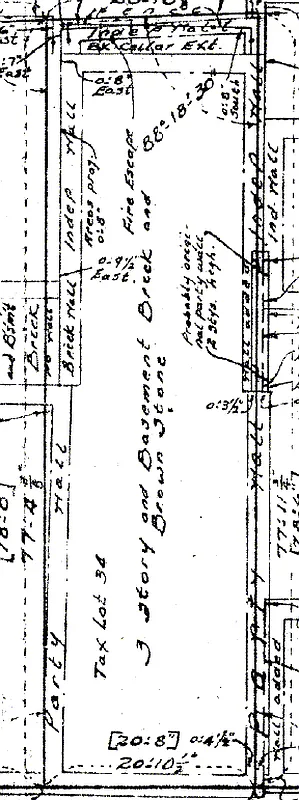 Indep Wall
Bk Cellar Ext.
0:8"
East
88°-18'-30"
0:8"
South
Areas proj.
0:8"
Fire Escape
Brick Wall Indep Wall
0:9½
East
Probably origi-
nal party wall
2 stys. high.
Indep Wall
Ind Wall
Wall added
and Bsmt
Brick
No Wall
0:3½"
3 Story and Basement Brick and
Brown Stone
Tax Lot 38
[18:0]
77-4⅜
Party Wall
Party Wall
77-11⅜"
Wall added
[20:8"] 0:4½"
20:10½"